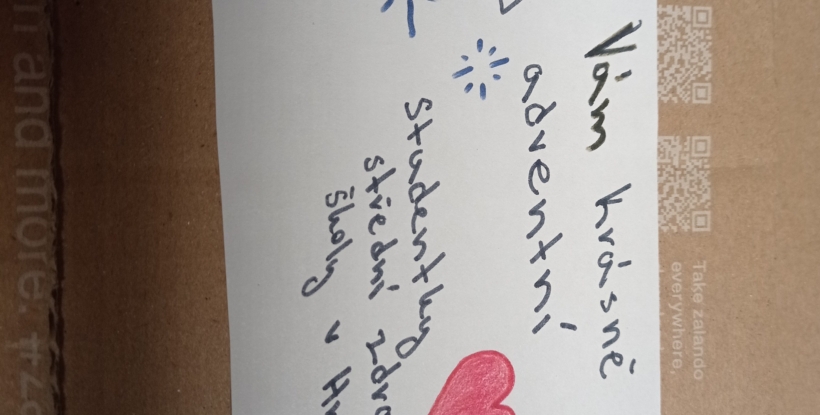 Vám krásné
adventní
studentky
střední
školy v
and more.
Take zalando
everywhere,